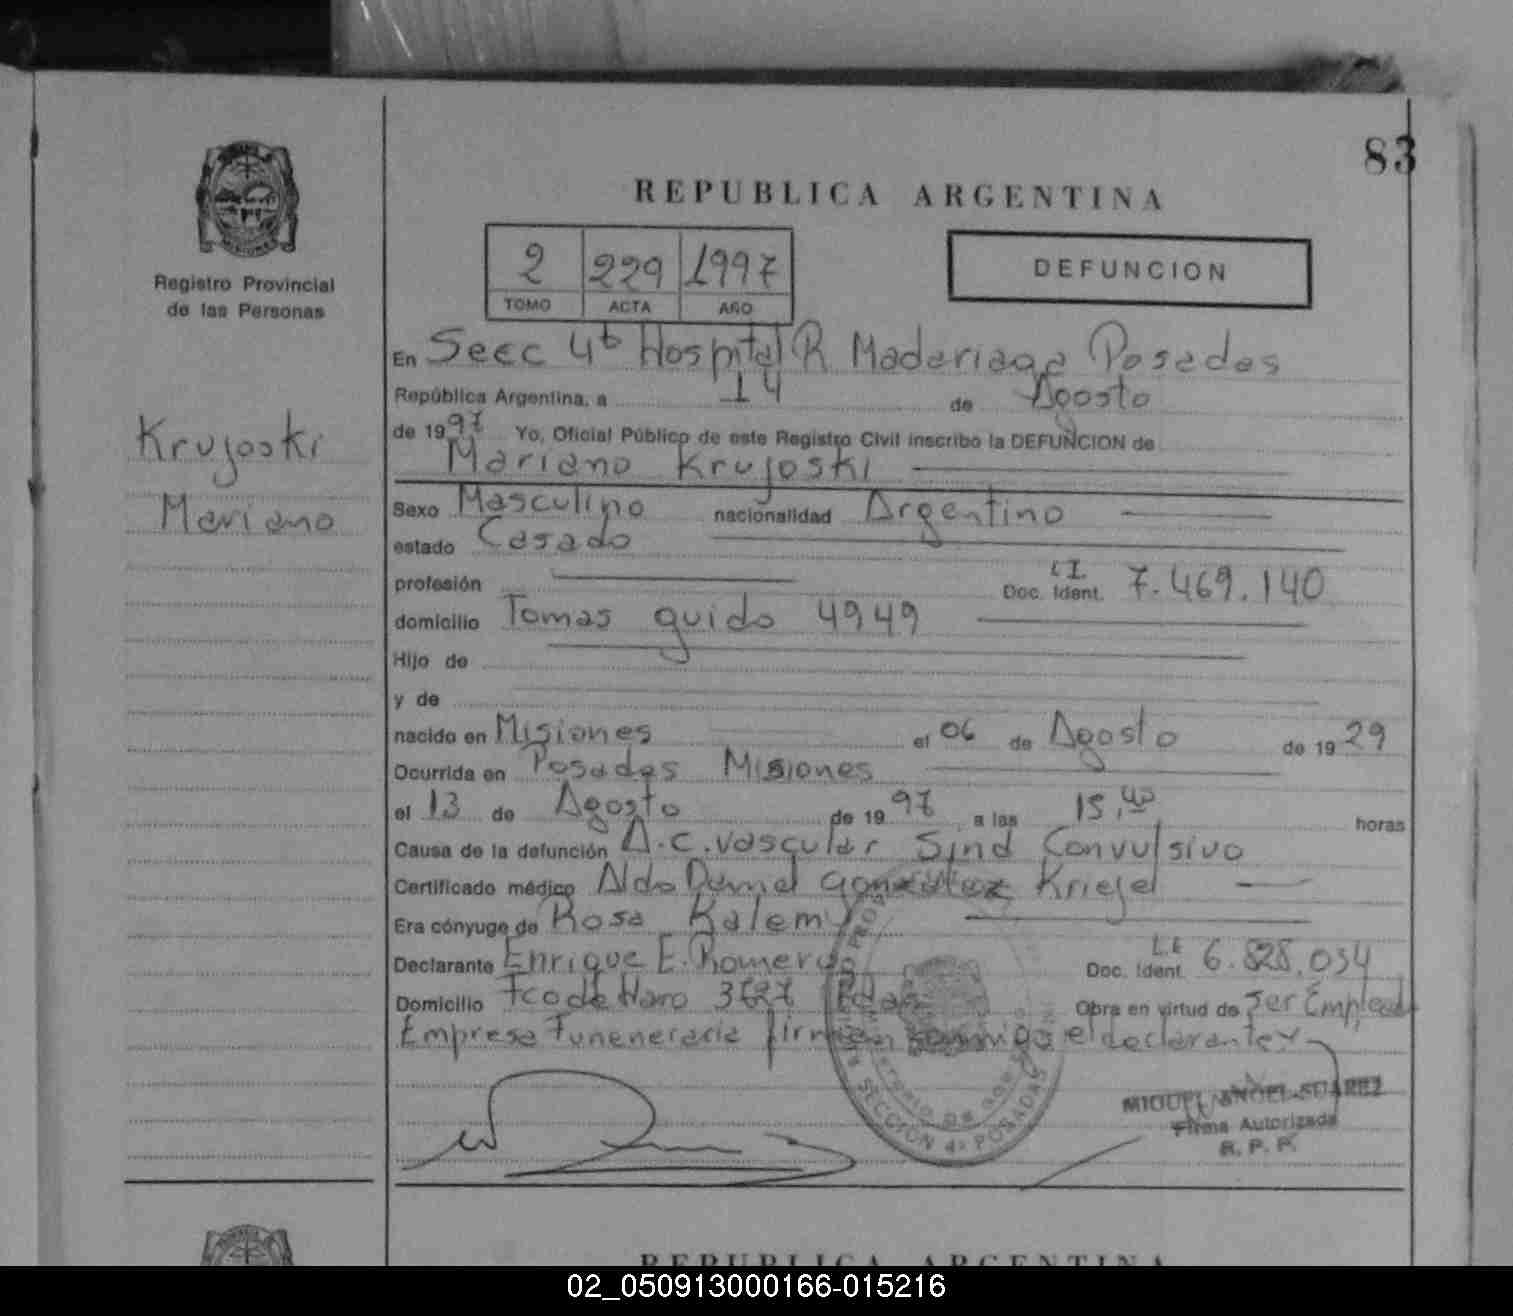 83
REPUBLICA ARGENTINA
Registro Provincial
de las Personas
2 229 1997
TOMO ACTA AÑO
DEFUNCION
Krujoski
Mariano
En Secc 4ta Hospital R Madariaga Posadas
República Argentina, a 14 de Agosto
de 1997 Yo, Oficial Público de este Registro Civil inscribo la DEFUNCION de
Mariano Krujoski
Sexo Masculino nacionalidad Argentino
estado Casado
profesión Doc. Ident. L I. 7.469.140
domicilio Tomas guido 4949
Hijo de
y de
nacido en Misiones el 06 de Agosto de 1929
Ocurrida en Posadas Misiones
el 13 de Agosto de 1997 a las 15,40 horas
Causa de la defunción A.C.vascular Sind Convulsivo
Certificado médico Aldo Daniel Kriegel
Era cónyuge de Rosa Kalemy
Declarante Enrique E. Romero Doc. Ident. L.E 6.828.034
Domicilio Fco de Haro 3627 Pdas Obra en virtud de Ser Empleado
Empresa Funeneraria firman conmigo el declarante
SECCION 4a POSADAS
MIGUEL ANGEL SUAREZ
Firma Autorizada
R. P. P.
REPUBLICA ARGENTINA
02_050913000166-015216